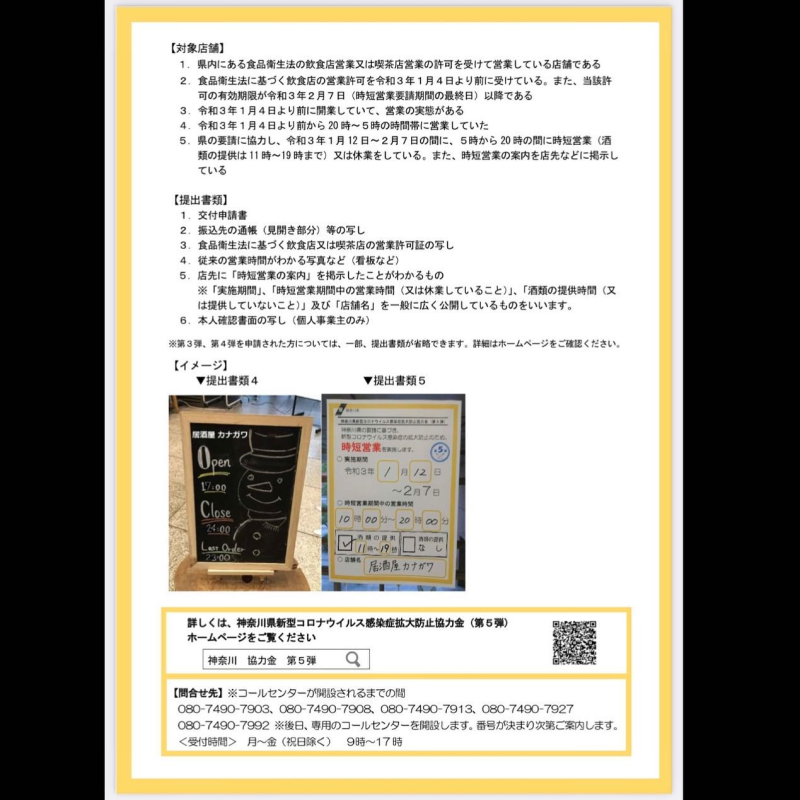 【対象店舗】
１．県内にある食品衛生法の飲食店営業又は喫茶店営業の許可を受けて営業している店舗である
２．食品衛生法に基づく飲食店の営業許可を令和３年１月４日より前に受けている。また、当該許
可の有効期限が令和３年２月７日（時短営業要請期間の最終日）以降である
３．令和３年１月４日より前に開業していて、営業の実態がある
４．令和３年１月４日より前から 20 時～５時の時間帯に営業していた
５．県の要請に協力し、令和３年１月 12 日～２月７日の間に、５時から 20 時の間に時短営業（酒
類の提供は 11 時～19 時まで）又は休業をしている。また、時短営業の案内を店先などに掲示し
ている
【提出書類】
１．交付申請書
２．振込先の通帳（見開き部分）等の写し
３．食品衛生法に基づく飲食店又は喫茶店の営業許可証の写し
４．従来の営業時間がわかる写真など（看板など）
５．店先に「時短営業の案内」を掲示したことがわかるもの
※「実施期間」、「時短営業期間中の営業時間（又は休業していること）」、「酒類の提供時間（又
は提供していないこと）」及び「店舗名」を一般に広く公開しているものをいいます。
６．本人確認書面の写し（個人事業主のみ）
※第３弾、第４弾を申請された方については、一部、提出書類が省略できます。詳細はホームページをご確認ください。
【イメージ】
▼提出書類４ ▼提出書類５
居酒屋 カナガワ
Open
17:00
Close
24:00
Last Order
23:00
神奈川県新型コロナウイルス感染症拡大防止協力金（第５弾）
神奈川県の要請に基づき、
新型コロナウイルス感染症の拡大防止のため、
時短営業を実施します。
第5弾
○ 実施期間
令和３年 1 月 12 日
～２月７日
○ 時短営業期間中の営業時間
10 時 00 分～ 20 時 00 分
酒類の提供 11時～19時 酒類の提供 なし
○ 店舗名 居酒屋カナガワ
詳しくは、神奈川県新型コロナウイルス感染症拡大防止協力金（第５弾）
ホームページをご覧ください
神奈川 協力金 第５弾
【問合せ先】※コールセンターが開設されるまでの間
080-7490-7903、080-7490-7908、080-7490-7913、080-7490-7927
080-7490-7992 ※後日、専用のコールセンターを開設します。番号が決まり次第ご案内します。
＜受付時間＞ 月～金（祝日除く） 9時～17時